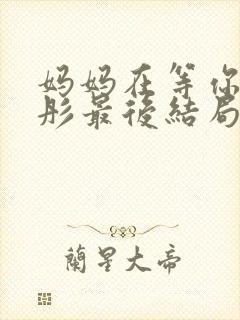 妈妈在等你
彤最後結局
蘭星大帝